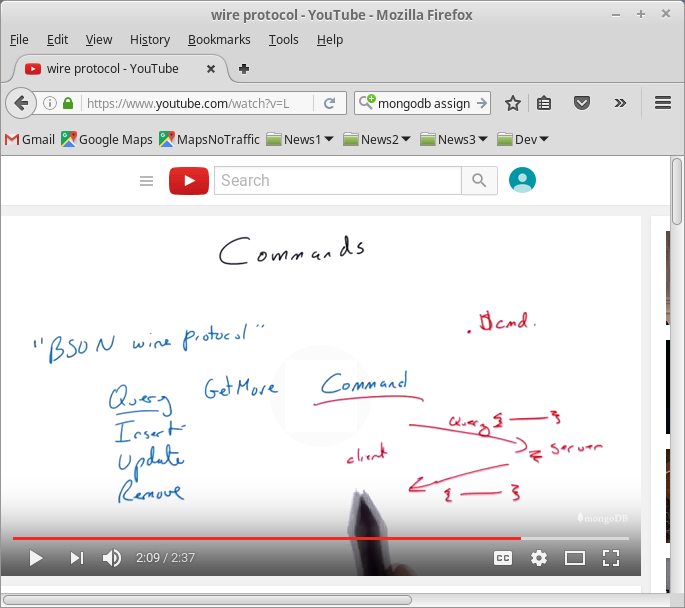 wire protocol - YouTube - Mozilla Firefox
File Edit View History Bookmarks Tools Help
wire protocol - YouTube
https://www.youtube.com/watch?v=L
mongodb assign
Gmail Google Maps MapsNoTraffic News1 News2 News3 Dev
Search
Commands
.$cmd.
"BSON wire protocol"
Query GetMore Command
Insert
Update
Remove
Query { }
client
server
{ }
mongoDB
2:09 / 2:37
CC